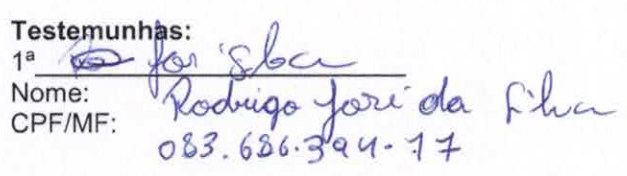 Testemunhas:
1ª José Silva
Nome: Rodrigo José da Silva
CPF/MF: 083.686.394-77